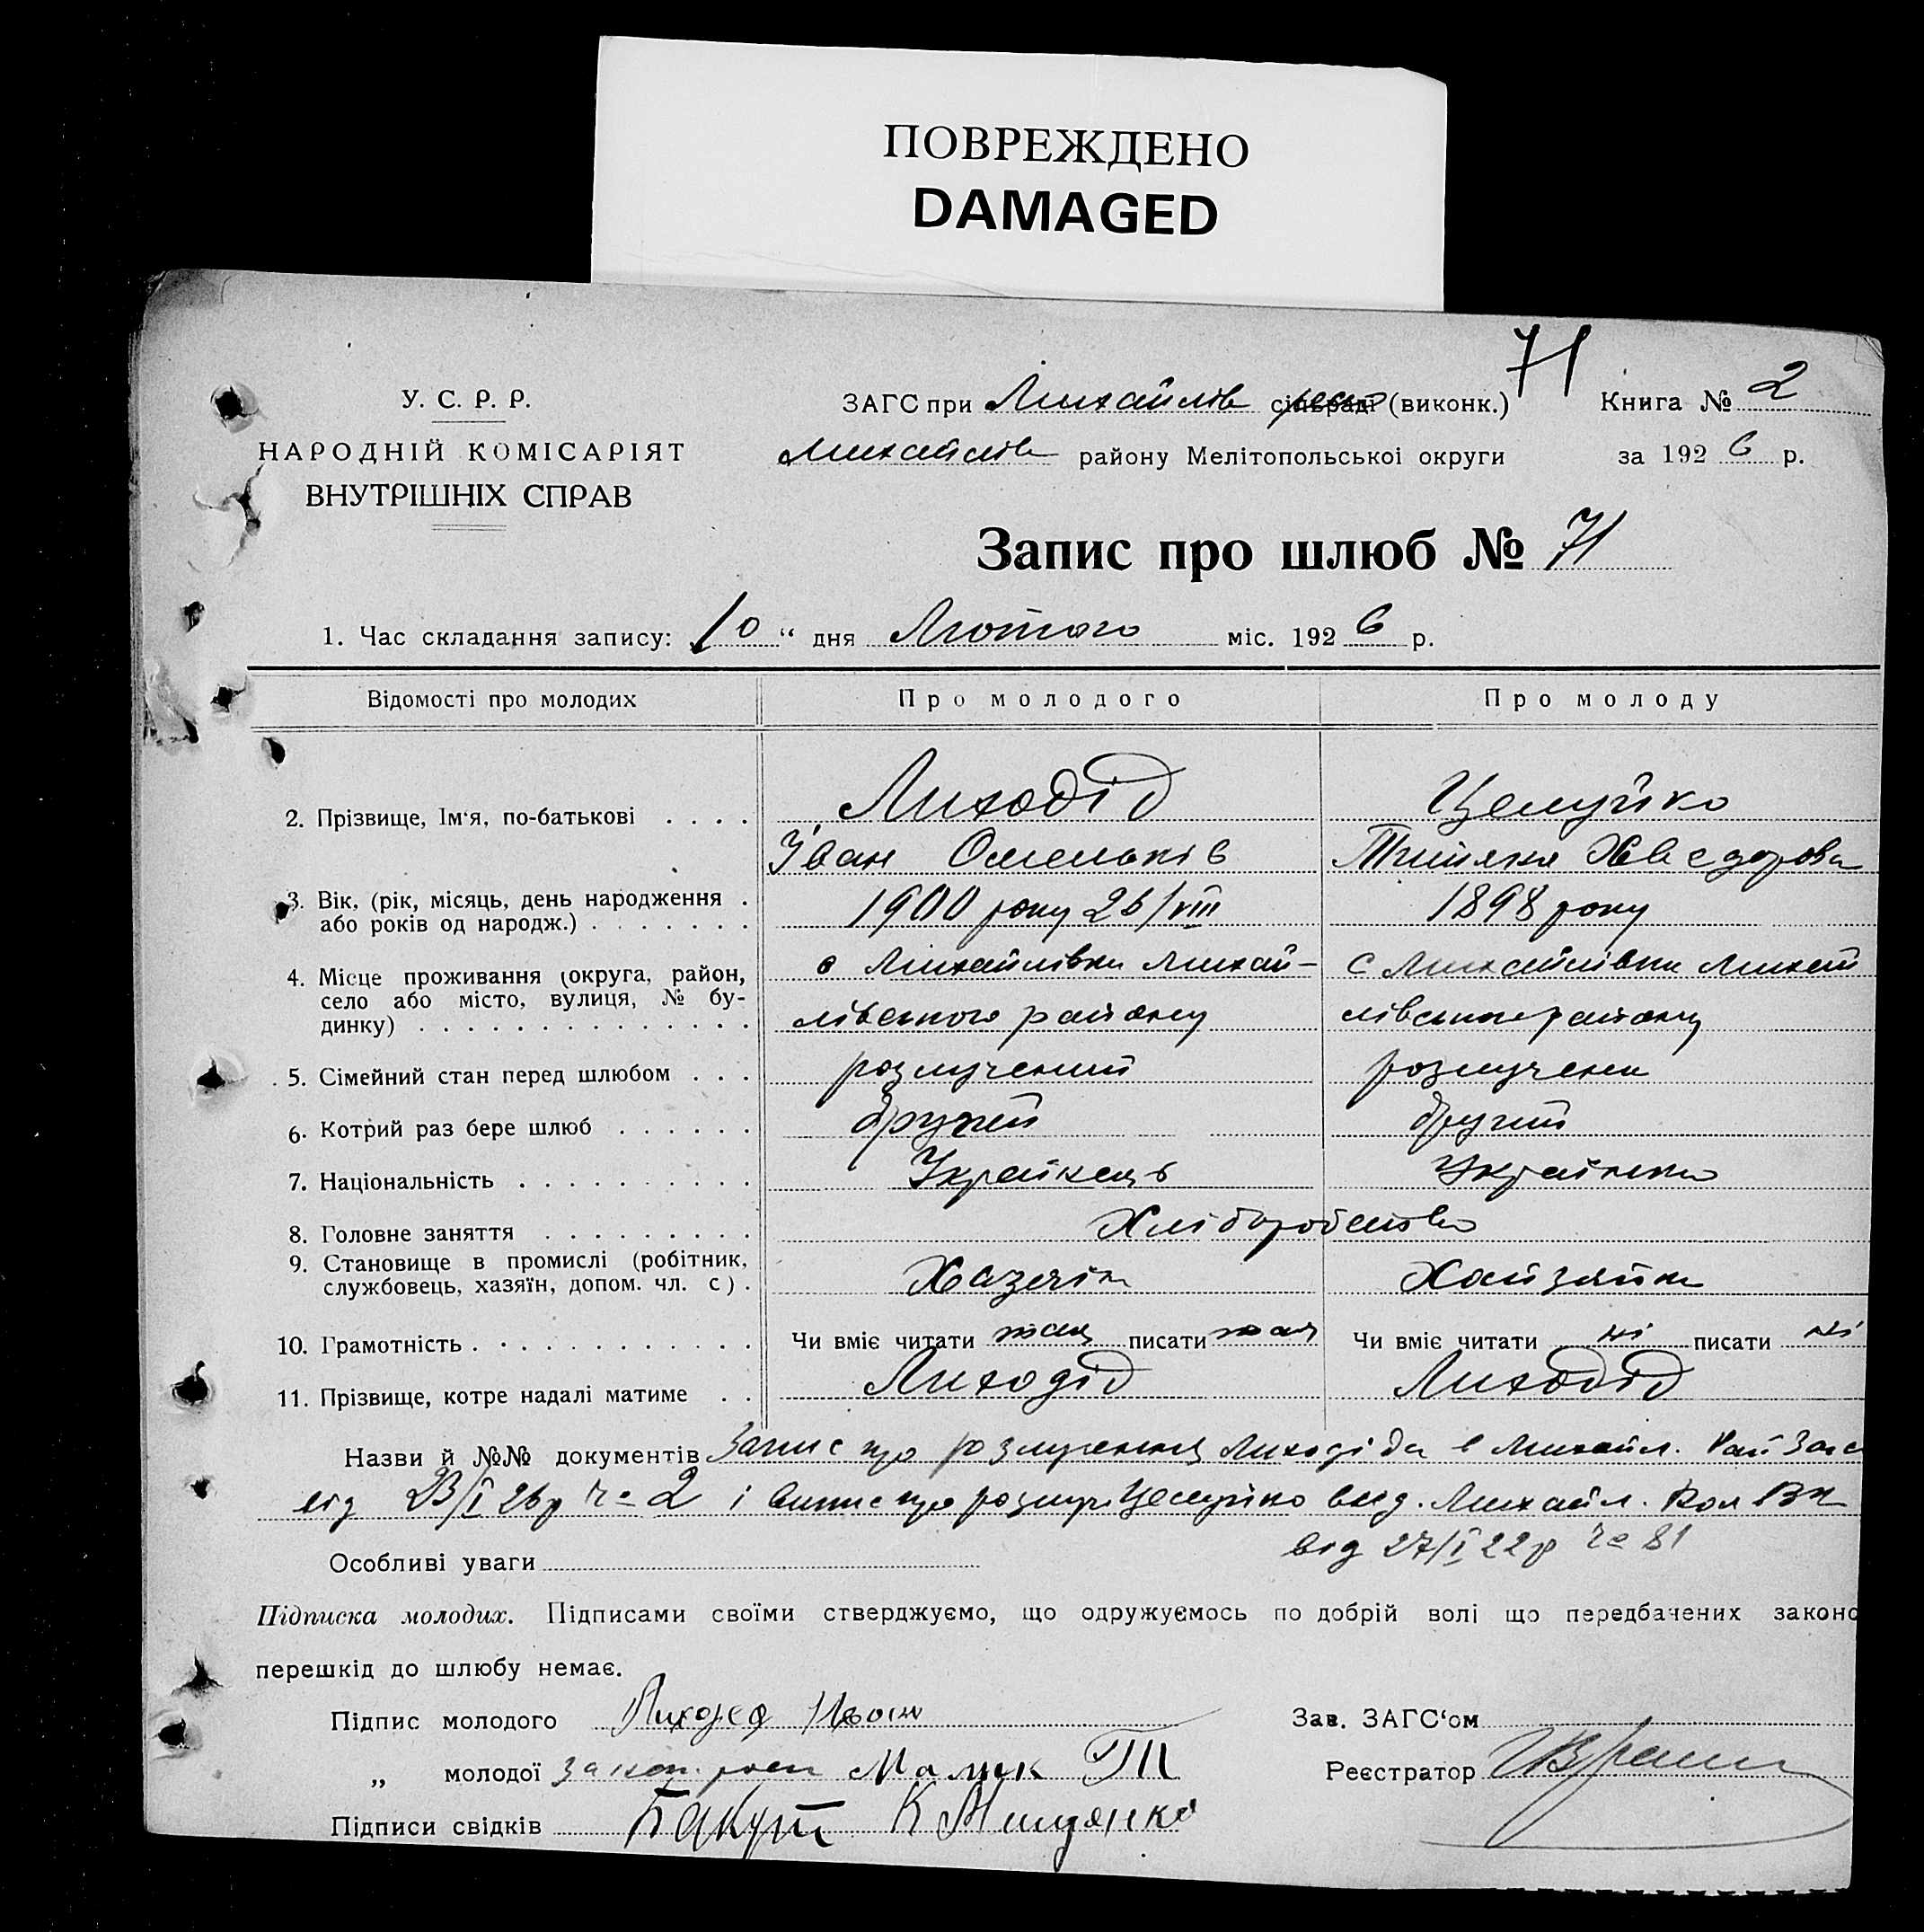 ПОВРЕЖДЕНО
DAMAGED
71
У. С. Р. Р.
НАРОДНІЙ КОМІСАРІЯТ
ВНУТРІШНІХ СПРАВ
ЗАГС при Михайлів сільраді (виконк.)
Михайлів району Мелітопольської округи
Книга № 2
за 1926 р.
Запис про шлюб № 71
1. Час складання запису: 10 “ дня Лютого міс. 1926 р.
Відомості про молодих Про молодого Про молоду
2. Прізвище, Ім'я, по-батькові . . . . Лиходід Целуйко
Іван Омельків Хведорова
3. Вік, (рік, місяць, день народження . 1900 року 26/VIII 1898 року
або років од народж.) . . . . . . .
4. Місце проживання (округа, район, с Михайлівки Михай- с Михайлівки Михай
село або місто, вулиця, № бу- лівського району лівського району
динку) . . . . . . . . . . . . . .
5. Сімейний стан перед шлюбом . . . розлучений розлучена
6. Котрий раз бере шлюб . . . . . . другий другий
7. Національність . . . . . . . . . . Українець Українка
8. Головне заняття . . . . . . . . . Хліборобство
9. Становище в промислі (робітник, Хазяїн Хайзяйка
службовець, хазяїн, допом. чл. с) .
10. Грамотність . . . . . . . . . . . . Чи вміє читати так писати так Чи вміє читати ні писати ні
11. Прізвище, котре надалі матиме . . Лиходід Лиходід
Назви й №№ документів Запис про розлучення Лиходіда в Михайл. Рай Загс
від 23/I 26р № 2 і випис про розлуч Целуйко вид. Михайл. Вол ВК
від 27/I 22р № 81
Особливі уваги
Підписка молодих. Підписами своїми стверджуємо, що одружуємось по добрій волі що передбачених законо
перешкід до шлюбу немає.
Підпис молодого Лиходед Иван
Зав. ЗАГС‘ом
„ молодої
Реєстратор
Підписи свідків Бакут К Мищенко